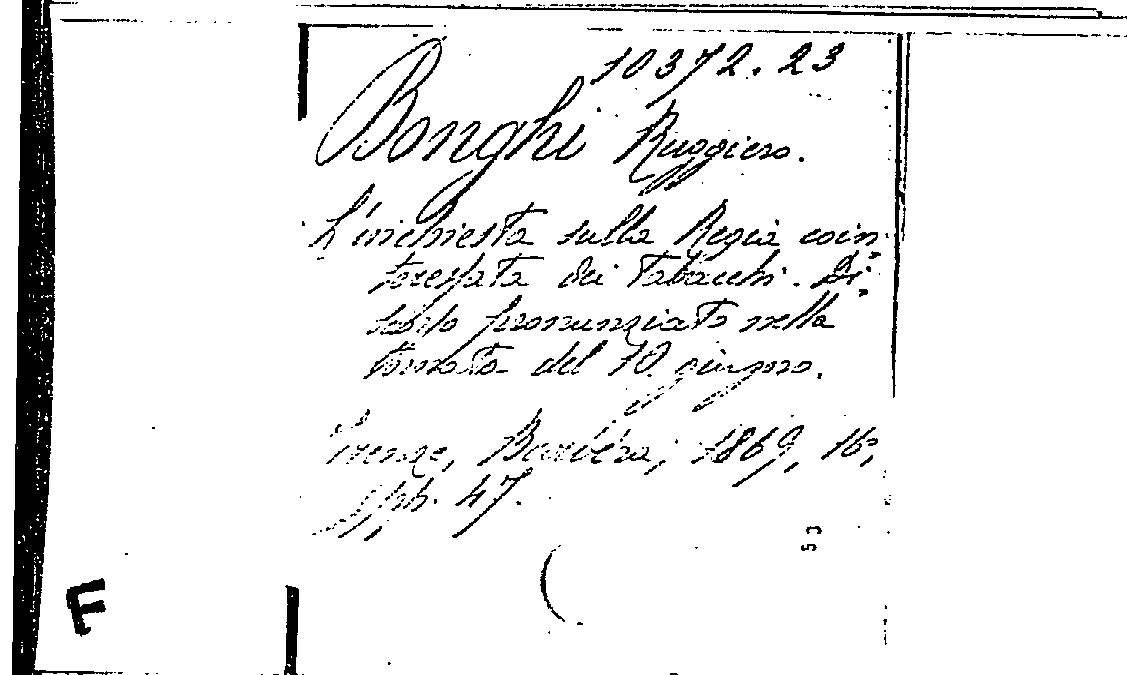 10372.23
Bonghi Ruggiero.
L'inchiesta sulla Regia coin-
teressata dei Tabacchi. Di-
scorso pronunziato nella
tornata del 10 giugno.
Firenze, Barbèra, 1869, 16°,
pp. 47.
53
F